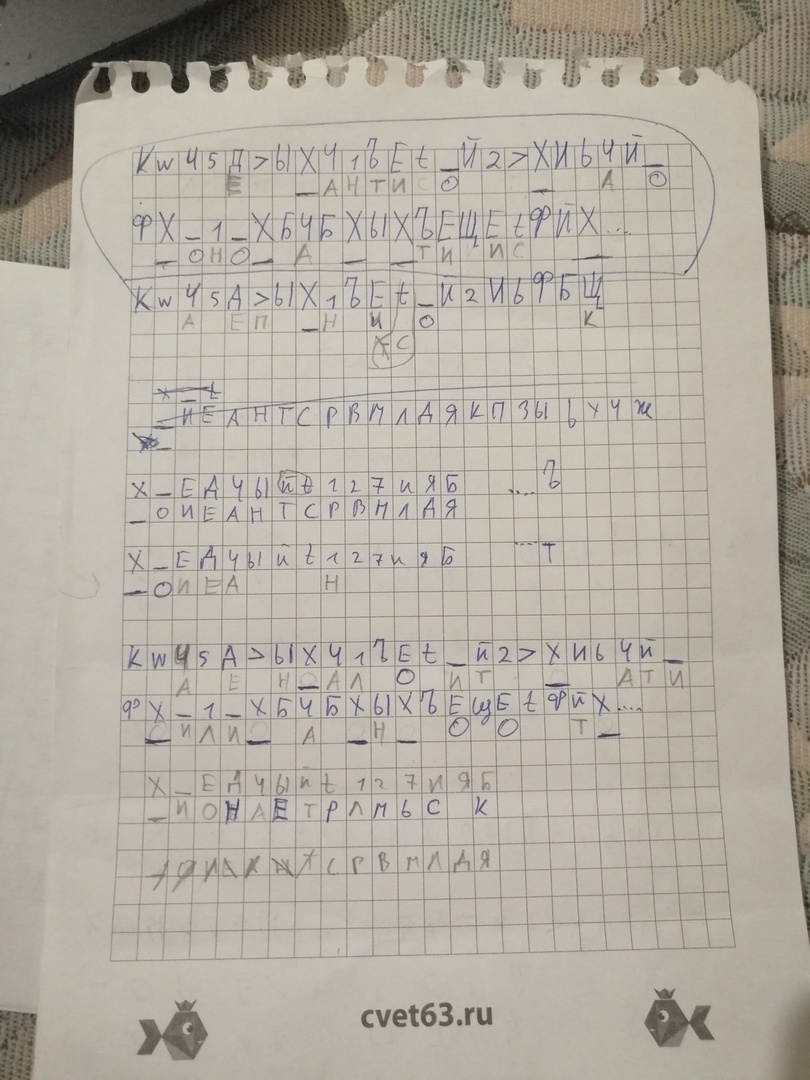 Kw45Д>ЫХЧ1ЪЕt_Й2>ХИЬЧЙ_
Е _АНТИСО _ А О
ФХ_1_ХБЧБХЫХЪЕЩЕtФЙХ...
_ОНО_ А _ _ТИ ИС _
КwЧ5Д>ЫХ1ЪЕt_Й2ИЬФБЩ
А ЕП _Н И О К
ХС
Х_t
_ИЕАНТСРВМЛДЯКПЗЫЬХЧЖ
Х_ЕДЧЫЙt127ИЯБ ....Ъ
_ОИЕАНТСРВМЛДЯ
Х_ЕДЧЫЙt127ИЯБ ....Т
_ОИЕА Н
КwЧ5Д>ЫХЧ1ЪЕt_Й2>ХИЬЧЙ_
А Е Н_АЛ О ИТ _ АТИ
ФХ_1_ХБЧБХЫХЪЕЩЕtФЙХ....
_ИЛИ_ А _Н_ О О Т_
Х_ЕДЧЫЙt127ИЯБ
_ИОНАЕТРЛМЬС К
СРВМЛДЯ
cvet63.ru